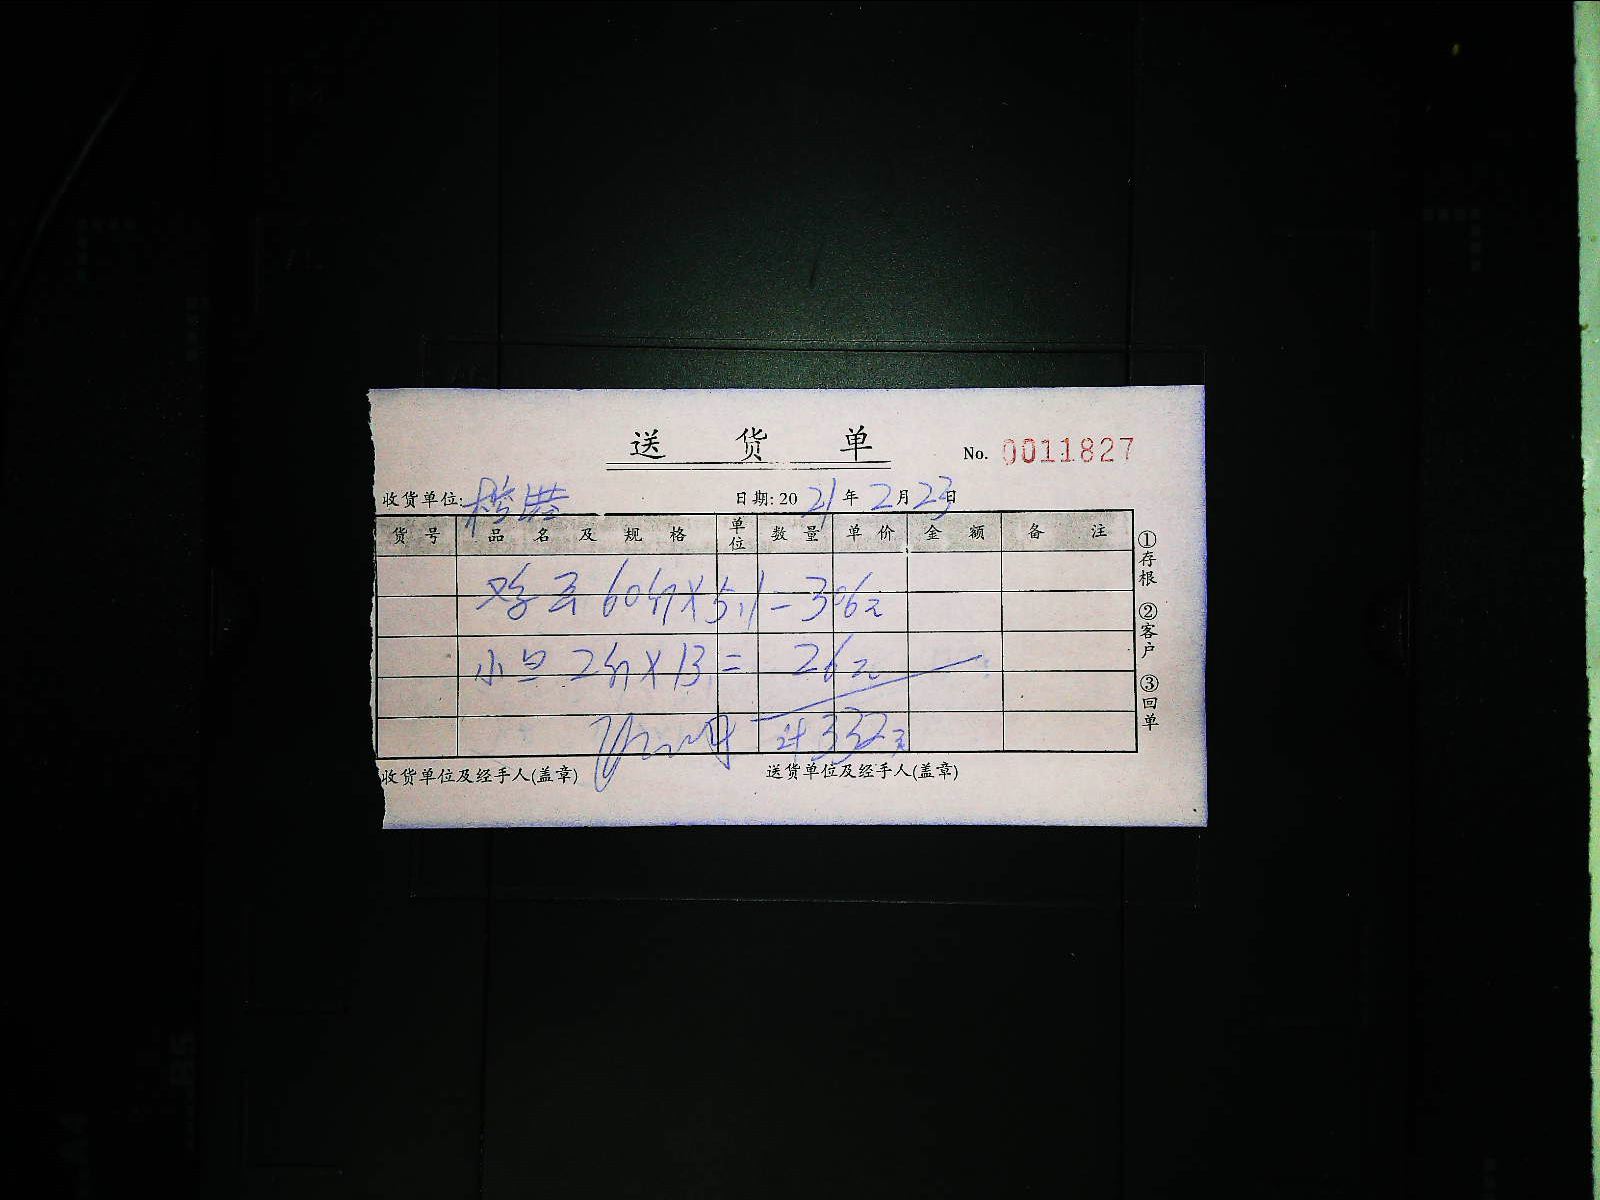 送 货 单
No. 0011827
收货单位:
日期: 2021年2月23日
货号 品名及规格 单位 数量 单价 金额 备注
鸡 60斤×5.1=306元
小 2斤×13=26元
计332元
收货单位及经手人(盖章) 送货单位及经手人(盖章)
①存根 ②客户 ③回单